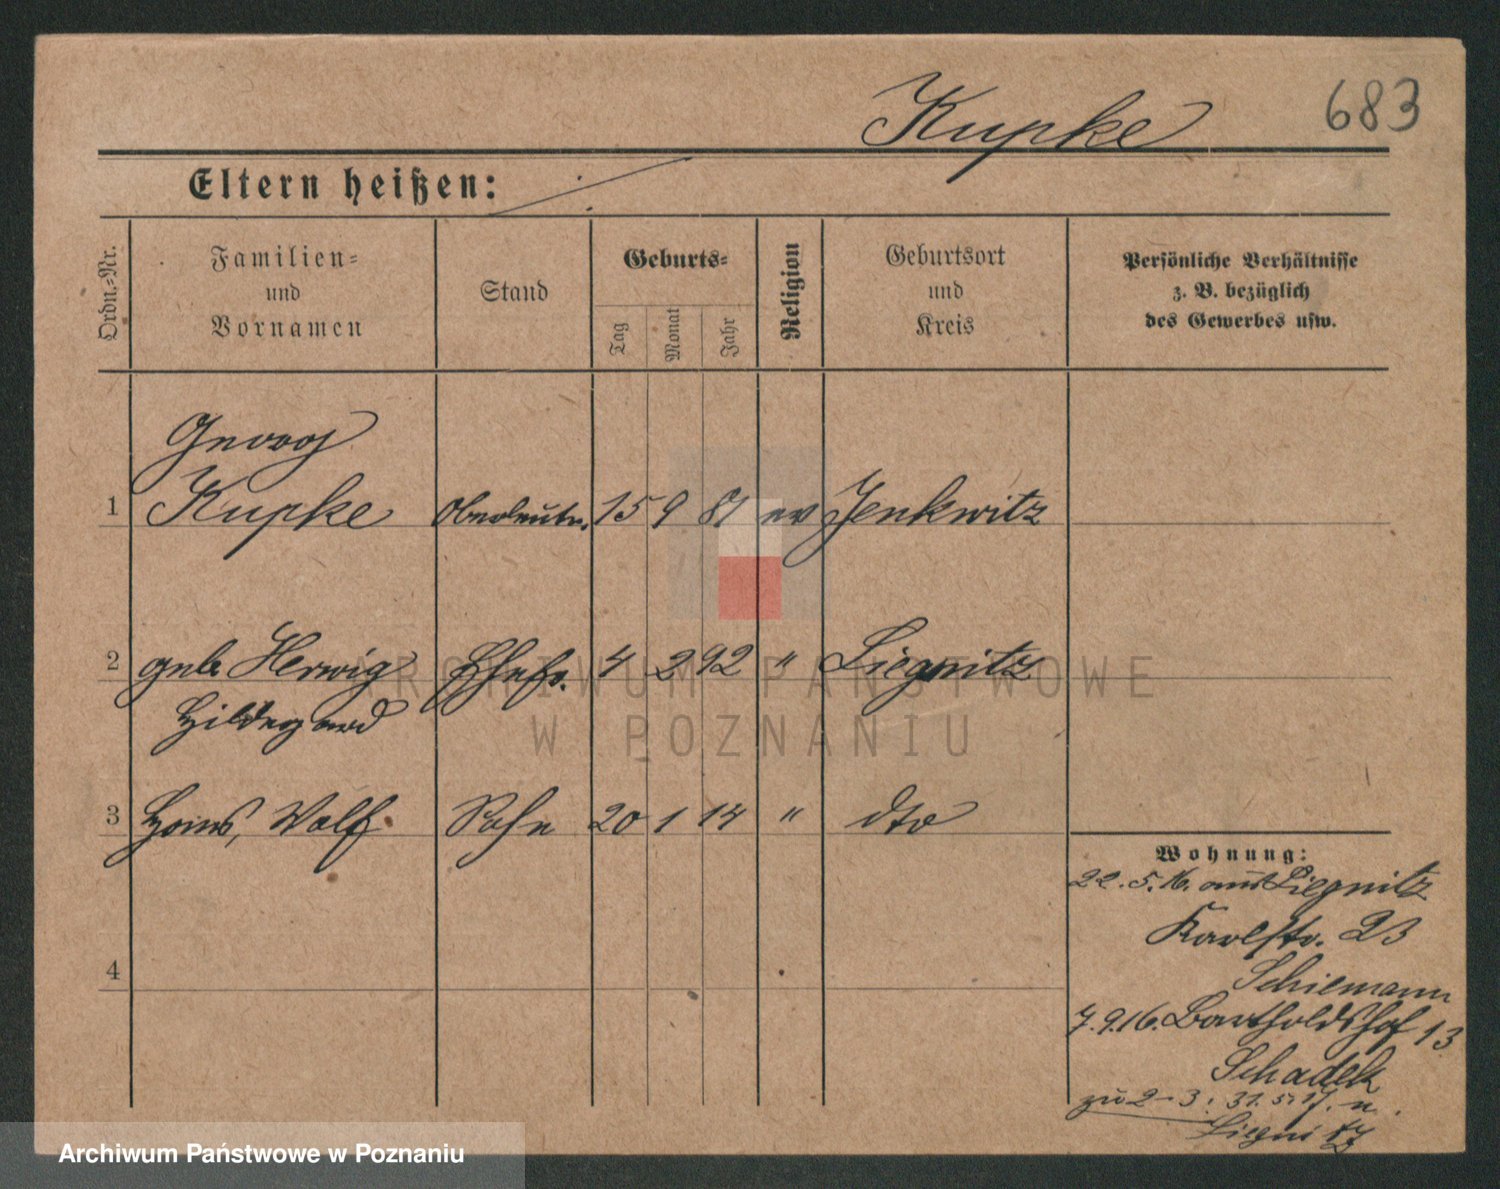 Kupke
683
Eltern heißen:
Ordn.-Nr.
Familien-
und
Vornamen
Stand
Geburts-
Tag
Monat
Jahr
Religion
Geburtsort
und
Kreis
Persönliche Verhältnisse
z. B. bezüglich
des Gewerbes usw.
Georg
1 Kupke Oberleutn. 15 9 87 ev Jenkwitz
2 geb. Herwig Ehefr. 4 2 92 " Liegnitz
Hildegard
3 Hans, Wolf Sohn 20 1 14 " dto
Wohnung:
22. 5. 16. aus Liegnitz
Karlstr. 23
Schiemann
4
7. 9. 16. Bartholdshof 13
Schadek
zu 2-3: 31. 5. 17. n.
Liegnitz
ARCHIWUM PAŃSTWOWE
W POZNANIU
Archiwum Państwowe w Poznaniu